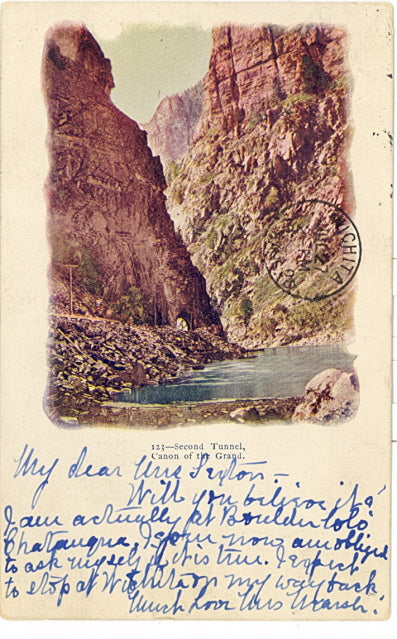 WICHITA
123—Second Tunnel,
Canon of the Grand.
My dear Mrs Sexton—
Will you believe it?
I am actually at Boulder Colo
Chatauqua. Even now am obliged
to ask myself if it is true. I expect
to stop at Wichita on my way back
Much love Mrs Marsh.